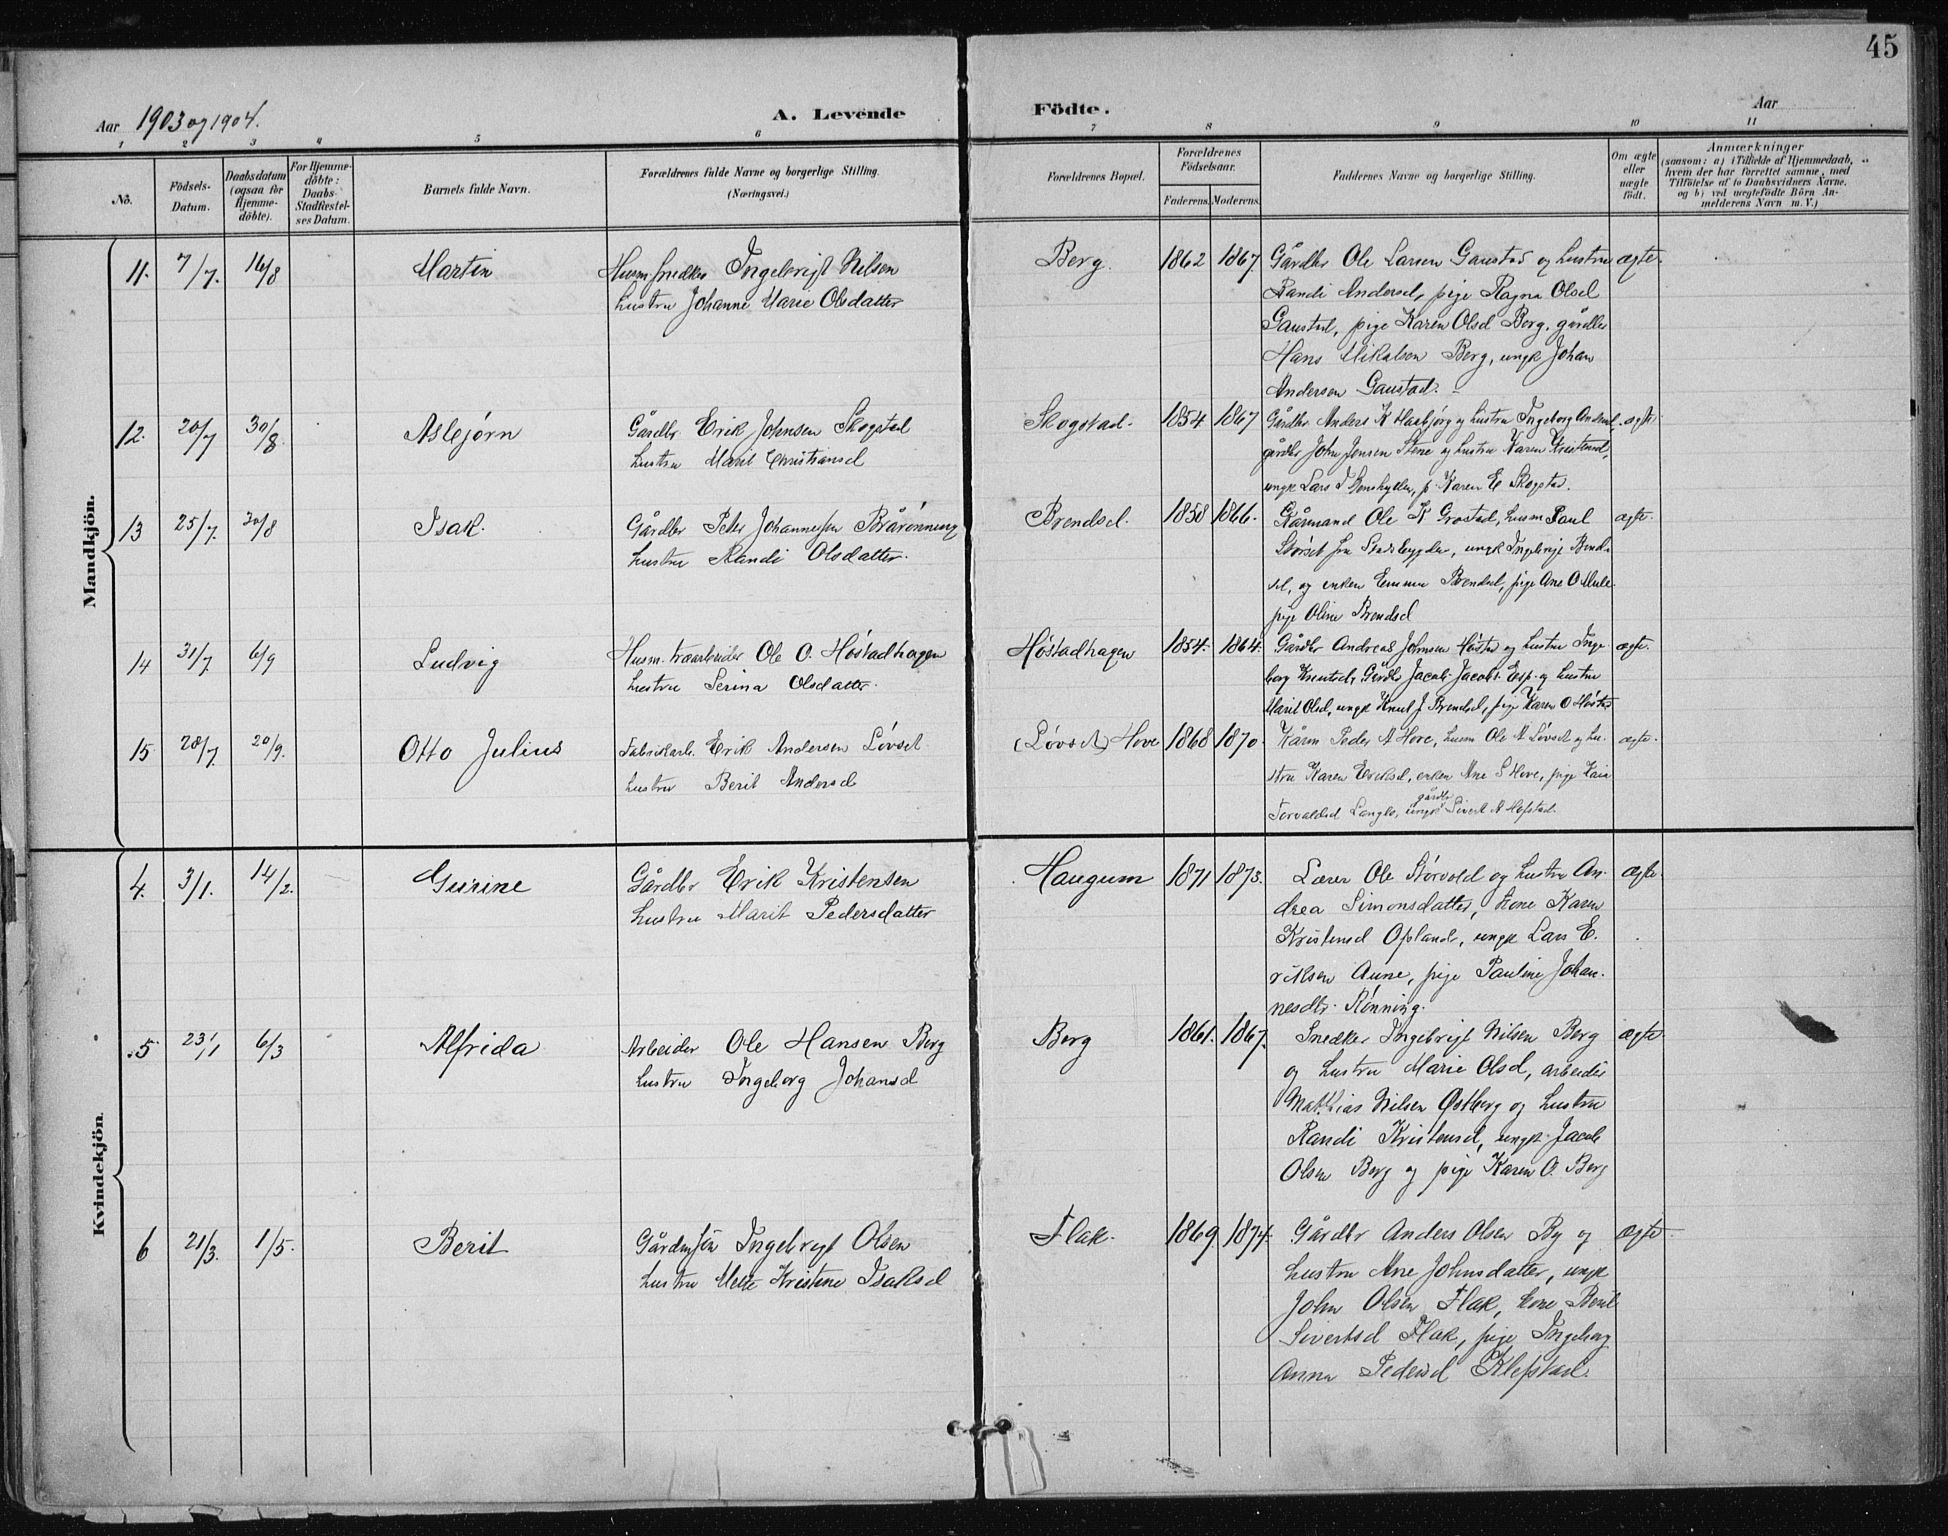 45
Aar 1903 og 1904.
A. Levende Födte.
Aar
1 2 3 4 5 6 7 8 9 10 11
No.
Födsels-Datum.
Daabsdatum (ogsaa for Hjemme-döbte).
For Hjemme-döbte: Daabs-Stadfæstel-ses Datum.
Barnets fulde Navn.
Forældrenes fulde Navne og borgerlige Stilling. (Næringsvei.)
Forældrenes Bopæl.
Forældrenes Födselsaar.
Faderens. Moderens.
Faddernes Navne og borgerlige Stilling.
Om ægte eller uægte födt.
Anmærkninger
(saasom: a) i Tilfælde af Hjemmedaab,
hvem der har forrettet samme, med
Tilföielse af to Daabsvidners Navne,
og b) ved uægtefödte Börn An-
melderens Navn m. V.)
Mandkjön.
11. 7/7. 16/8 Martin
Husm. snedker Ingebrigt Nilsen
hustru Johanne Marie Olsdatter
Berg. 1862 1867
Gårdbr Ole Larsen Gaustad og hustru
Randi Andersd, pige Ragna Olsd
Gaustad, pige Karen Olsd Berg, gårdbr
Hans Mikalsen Berg, ungk Johan
Andersen Gaustad.
ægte.
12. 20/7 30/8. Asbjørn
Gårdbr Erik Johnsen Skogstad
hustru Marit Christiansd
Skogstad. 1854. 1867
Gårdbr Anders K Harbjørg og hustru Ingeborg Andersd,
gårdbr John Jensen Stene og hustru Karen Kristensd,
ungk Lars, p. Karen E Skogstad.
ægte
13 25/7. 30/8 Isak.
Gårdbr Peder Johannessen Bårønning
hustru Randi Olsdatter.
Brendsel. 1858 1866.
Kårmand Ole K Grostad, husm Paul
Størset fra Stadsbygden, ungk Ingebrigt Bend-
sel, og enken Emma Brendsel, pige Ane O Mule
pige Oline Brendsel
ægte.
14 31/7 6/9 Ludvig
Husm. træarbeider Ole O. Høstadhagen
hustru Serina Olsdatter.
Høstadhagen 1854. 1864.
Gårdbr Andreas Johnsen Høstad og hustru Inge-
borg Knutsd, Gårdb Jacob Jacobs. Esp. og hustru
Marit Olsd, ungk Knut J Brendsel, pige Karen O Høstad
ægte.
15 28/7. 20/9. Otto Julius
Fabrikarb. Erik Andersen Løvset
hustru Berit Andersd
(Løvset) Hove 1868 1870.
Kårm Peder A Hove, husm Ole A Løvset og hu-
stru Karen Eriksd, enken Ane S Hove, pige Kaia
Torvaldsd Langlo, ungk gårdbr Sivert A Hofstad.
ægte.
Kvindekjön.
4. 3/1. 14/2. Gurine
Gårdbr Erik Kristensen
hustru Marit Pedersdatter
Haugum 1871 1873.
Lærer Ole Størvold og hustru An-
drea Simonsdatter, kone Karen
Kristensd Opland, ungk Lars E.
riksen Aune, pige Pauline Johan-
nesdtr. Rønning.
ægte
5 23/1 6/3 Alfrida
Arbeider Ole Hansen Berg
hustru Ingeborg Johansd
Berg 1861. 1867.
Snedker Ingebrigt Nilsen Berg
og hustru Marie Olsd, arbeider
Mathias Nilsen Østberg og hustru
Randi Kristensd, ungk. Jacob
Olsen Berg og pige Karen O. Berg
ægte
6 21/3. 1/5. Berit
Gårdmsøn Ingebrigt Olsen
hustru Mette Kristine Isaksd
Flak. 1869. 1874.
Gårdbr Anders Olsen By og
hustru Ane Johnsdatter, ungk
John Olsen Flak, kone Berit
Sivertsd Flak, pige Ingeborg
Anna Pedersd Klefstad.
ægte